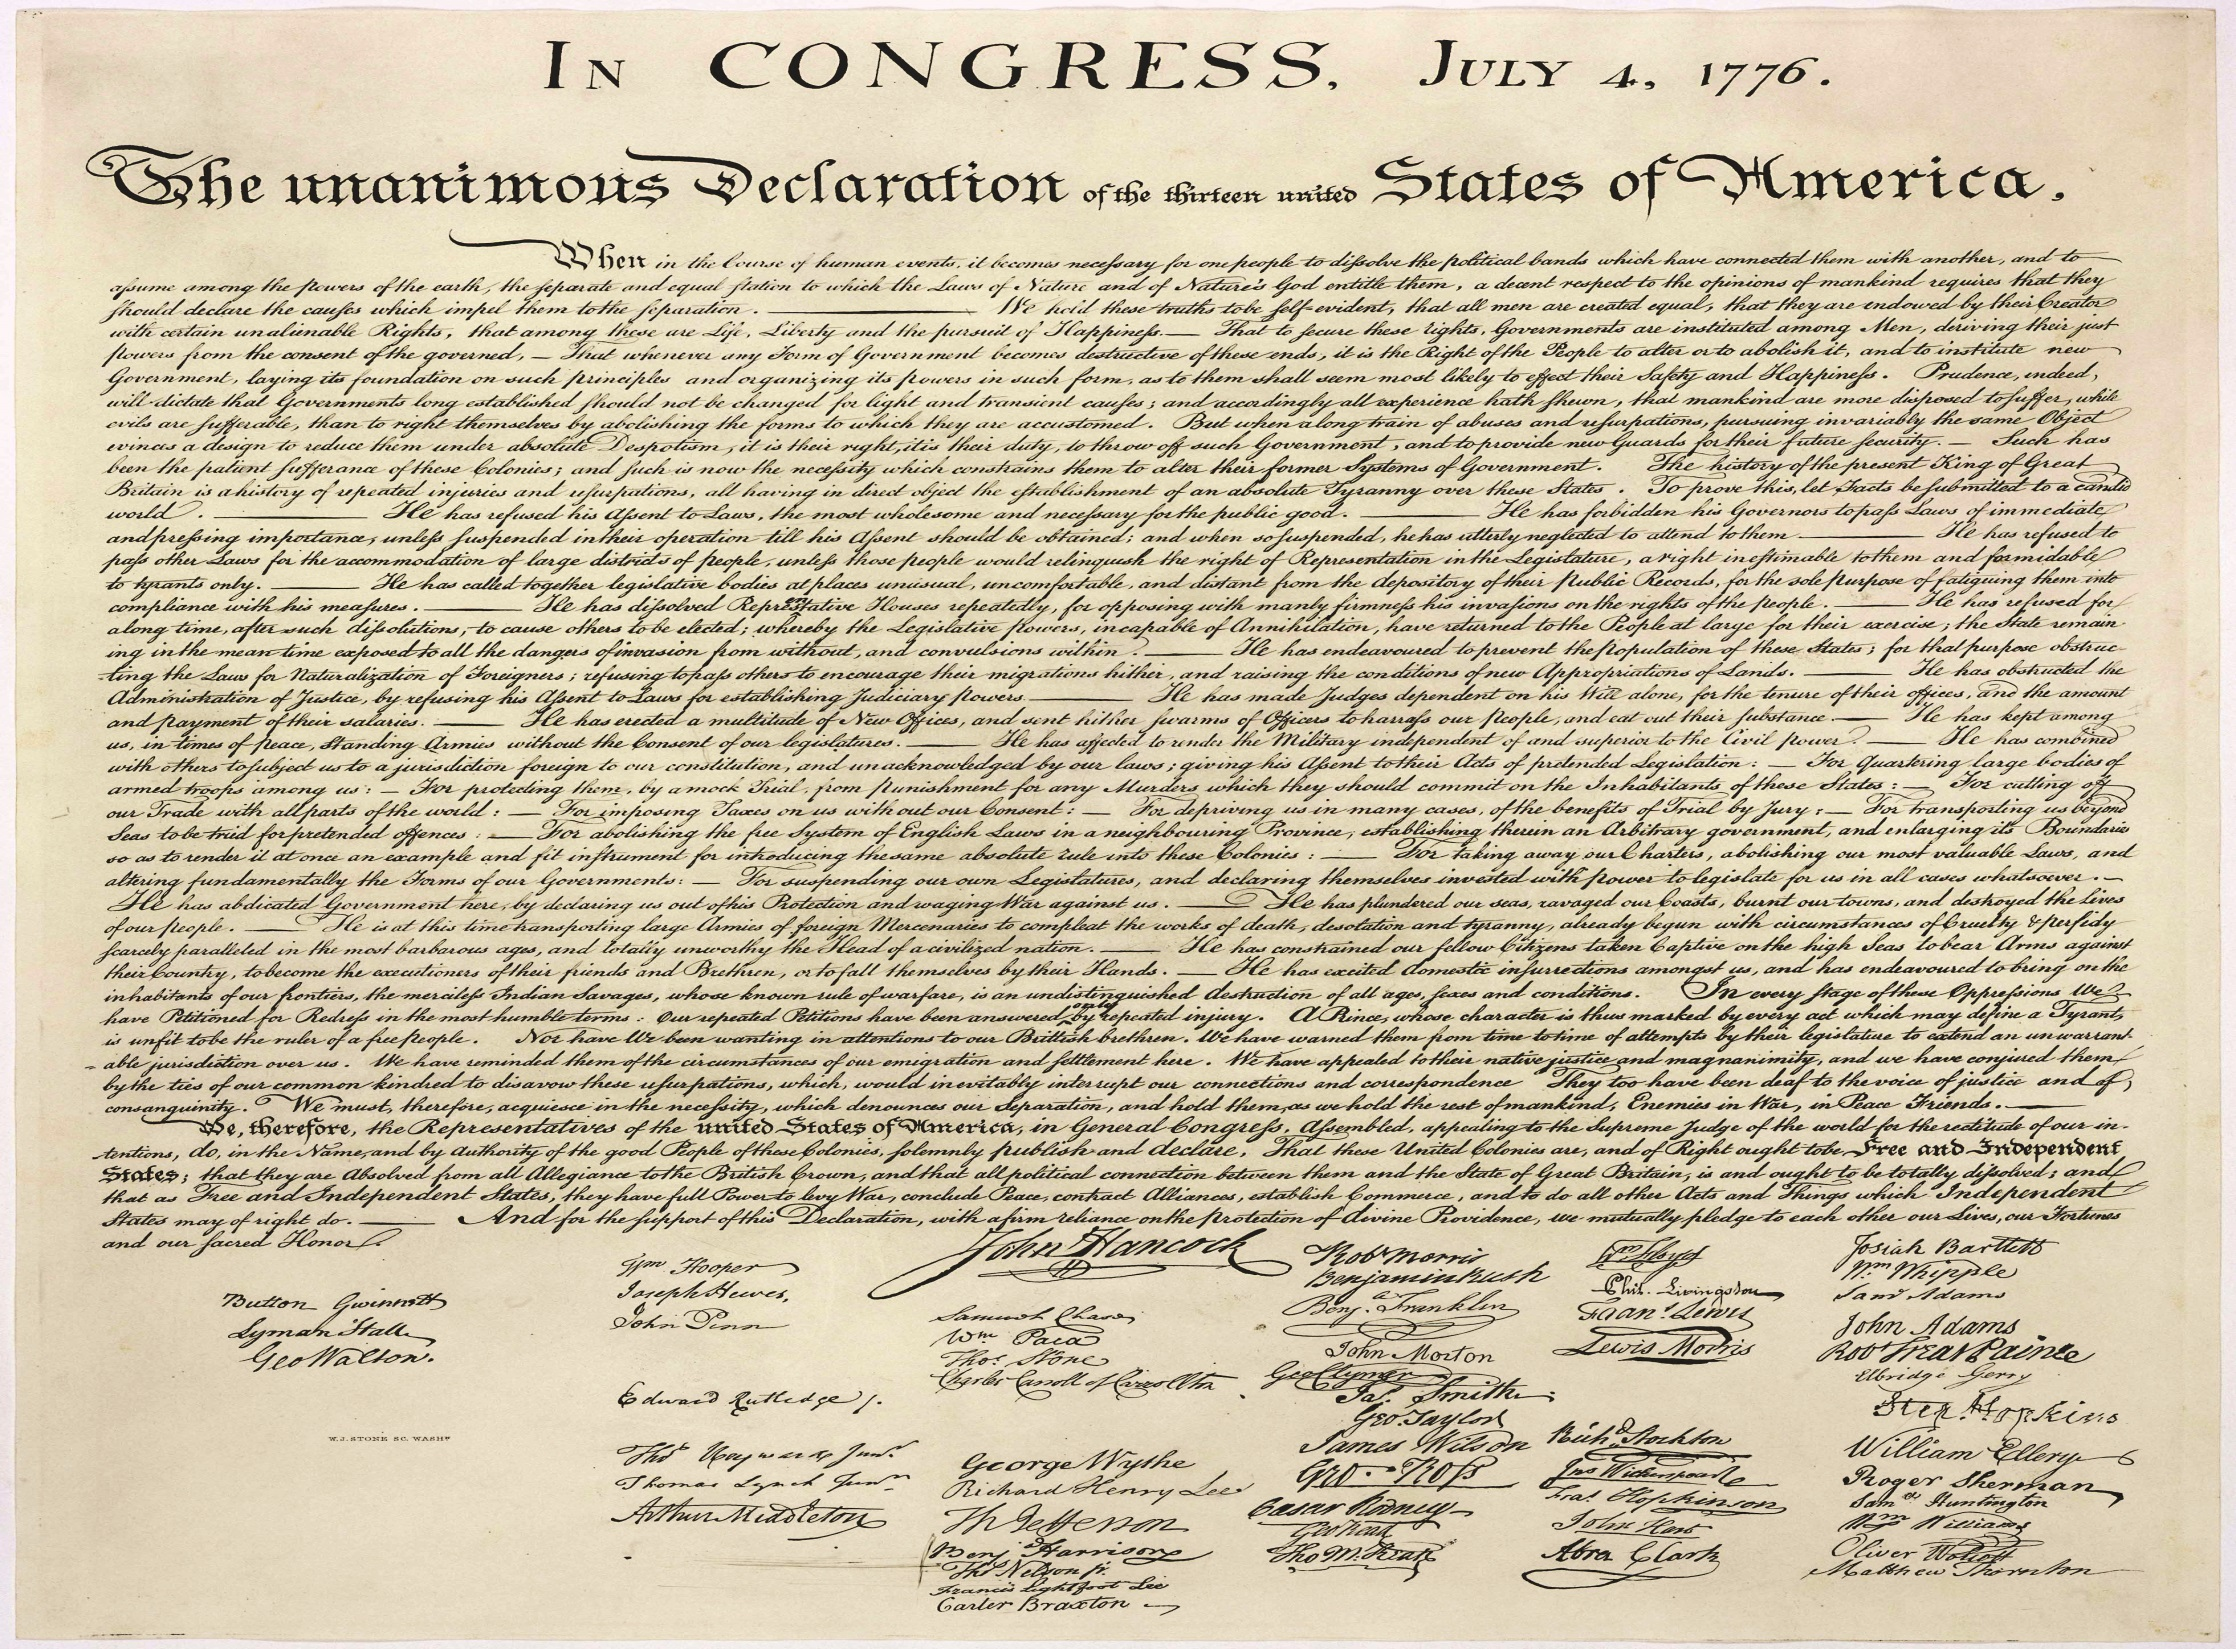 In CONGRESS, July 4, 1776.
The unanimous Declaration of the thirteen united States of America,
When in the Course of human events, it becomes necessary for one people to dissolve the political bands which have connected them with another, and to
assume among the powers of the earth, the separate and equal station to which the Laws of Nature and of Nature's God entitle them, a decent respect to the opinions of mankind requires that they
should declare the causes which impel them to the separation. ——— We hold these truths to be self-evident, that all men are created equal, that they are endowed by their Creator
with certain unalienable Rights, that among these are Life, Liberty and the pursuit of Happiness.— That to secure these rights, Governments are instituted among Men, deriving their just
powers from the consent of the governed, — That whenever any Form of Government becomes destructive of these ends, it is the Right of the People to alter or to abolish it, and to institute new
Government, laying its foundation on such principles and organizing its powers in such form, as to them shall seem most likely to effect their Safety and Happiness. Prudence, indeed,
will dictate that Governments long established should not be changed for light and transient causes; and accordingly all experience hath shewn, that mankind are more disposed to suffer, while
evils are sufferable, than to right themselves by abolishing the forms to which they are accustomed. But when a long train of abuses and usurpations, pursuing invariably the same Object
evinces a design to reduce them under absolute Despotism, it is their right, it is their duty, to throw off such Government, and to provide new Guards for their future security. — Such has
been the patient sufferance of these Colonies; and such is now the necessity which constrains them to alter their former Systems of Government. The history of the present King of Great
Britain is a history of repeated injuries and usurpations, all having in direct object the establishment of an absolute Tyranny over these States. To prove this, let Facts be submitted to a candid
world. ——— He has refused his Assent to Laws, the most wholesome and necessary for the public good. ——— He has forbidden his Governors to pass Laws of immediate
and pressing importance, unless suspended in their operation till his Assent should be obtained; and when so suspended, he has utterly neglected to attend to them. ——— He has refused to
pass other Laws for the accommodation of large districts of people, unless those people would relinquish the right of Representation in the Legislature, a right inestimable to them and formidable
to tyrants only. ——— He has called together legislative bodies at places unusual, uncomfortable, and distant from the depository of their public Records, for the sole purpose of fatiguing them into
compliance with his measures. ——— He has dissolved Representative Houses repeatedly, for opposing with manly firmness his invasions on the rights of the people. ——— He has refused for
a long time, after such dissolutions, to cause others to be elected; whereby the Legislative powers, incapable of Annihilation, have returned to the People at large for their exercise; the State remain
ing in the mean time exposed to all the dangers of invasion from without, and convulsions within. ——— He has endeavoured to prevent the population of these States; for that purpose obstruc
ting the Laws for Naturalization of Foreigners; refusing to pass others to encourage their migrations hither, and raising the conditions of new Appropriations of Lands. ——— He has obstructed the
Administration of Justice, by refusing his Assent to Laws for establishing Judiciary powers. ——— He has made Judges dependent on his Will alone, for the tenure of their offices, and the amount
and payment of their salaries. ——— He has erected a multitude of New Offices, and sent hither swarms of Officers to harrass our people, and eat out their substance. —— He has kept among
us, in times of peace, Standing Armies without the Consent of our legislatures. ——— He has affected to render the Military independent of and superior to the Civil power. —— He has combined
with others to subject us to a jurisdiction foreign to our constitution, and unacknowledged by our laws; giving his Assent to their Acts of pretended Legislation: — For Quartering large bodies of
armed troops among us: — For protecting them, by a mock Trial, from punishment for any Murders which they should commit on the Inhabitants of these States: — For cutting off
our Trade with all parts of the world: — For imposing Taxes on us without our Consent: — For depriving us in many cases, of the benefits of Trial by Jury: — For transporting us beyond
Seas to be tried for pretended offences: — For abolishing the free System of English Laws in a neighbouring Province, establishing therein an Arbitrary government, and enlarging its Boundaries
so as to render it at once an example and fit instrument for introducing the same absolute rule into these Colonies: — For taking away our Charters, abolishing our most valuable Laws, and
altering fundamentally the Forms of our Governments: — For suspending our own Legislatures, and declaring themselves invested with power to legislate for us in all cases whatsoever. —
He has abdicated Government here, by declaring us out of his Protection and waging War against us. —— He has plundered our seas, ravaged our Coasts, burnt our towns, and destroyed the lives
of our people. —— He is at this time transporting large Armies of foreign Mercenaries to compleat the works of death, desolation and tyranny, already begun with circumstances of Cruelty & perfidy
scarcely paralleled in the most barbarous ages, and totally unworthy the Head of a civilized nation. —— He has constrained our fellow Citizens taken Captive on the high Seas to bear Arms against
their Country, to become the executioners of their friends and Brethren, or to fall themselves by their Hands. — He has excited domestic insurrections amongst us, and has endeavoured to bring on the
inhabitants of our frontiers, the merciless Indian Savages, whose known rule of warfare, is an undistinguished destruction of all ages, sexes and conditions. In every stage of these Oppressions We
have Petitioned for Redress in the most humble terms: Our repeated Petitions have been answered only by repeated injury. A Prince, whose character is thus marked by every act which may define a Tyrant,
is unfit to be the ruler of a free people. Nor have We been wanting in attentions to our Brittish brethren. We have warned them from time to time of attempts by their legislature to extend an unwarrant-
able jurisdiction over us. We have reminded them of the circumstances of our emigration and settlement here. We have appealed to their native justice and magnanimity, and we have conjured them
by the ties of our common kindred to disavow these usurpations, which, would inevitably interrupt our connections and correspondence They too have been deaf to the voice of justice and of
consanguinity. We must, therefore, acquiesce in the necessity, which denounces our Separation, and hold them, as we hold the rest of mankind, Enemies in War, in Peace Friends. ———
We, therefore, the Representatives of the united States of America, in General Congress, Assembled, appealing to the Supreme Judge of the world for the rectitude of our in-
tentions, do, in the Name, and by Authority of the good People of these Colonies, solemnly publish and declare, That these United Colonies are, and of Right ought to be Free and Independent
States; that they are Absolved from all Allegiance to the British Crown, and that all political connection between them and the State of Great Britain, is and ought to be totally dissolved; and
that as Free and Independent States, they have full Power to levy War, conclude Peace, contract Alliances, establish Commerce, and to do all other Acts and Things which Independent
States may of right do. —— And for the support of this Declaration, with a firm reliance on the protection of divine Providence, we mutually pledge to each other our Lives, our Fortunes
and our sacred Honor.
Button Gwinnett
Lyman Hall
Geo Walton.
W. J. STONE SC. WASHN
Wm Hooper
Joseph Hewes,
John Penn
Edward Rutledge /.
Thos Heyward Junr.
Thomas Lynch Junr.
Arthur Middleton
John Hancock
Samuel Chase
Wm. Paca
Thos. Stone
Charles Carroll of Carrollton
George Wythe
Richard Henry Lee
Th Jefferson
Benj Harrison
Thos Nelson jr.
Francis Lightfoot Lee
Carter Braxton
Robt Morris
Benjamin Rush
Benj. Franklin
John Morton
Geo Clymer
Jas. Smith.
Geo. Taylor
James Wilson
Geo. Ross
Caesar Rodney
Geo Read
Tho M:Kean
Wm Floyd
Phil. Livingston
Frans. Lewis
Lewis Morris
Richd. Stockton
Jno Witherspoon
Fras. Hopkinson
John Hart
Abra Clark
Josiah Bartlett
Wm. Whipple
Saml Adams
John Adams
Robt Treat Paine
Elbridge Gerry
Step. Hopkins
William Ellery
Roger Sherman
Saml Huntington
Wm. Williams
Oliver Wolcott
Matthew Thornton